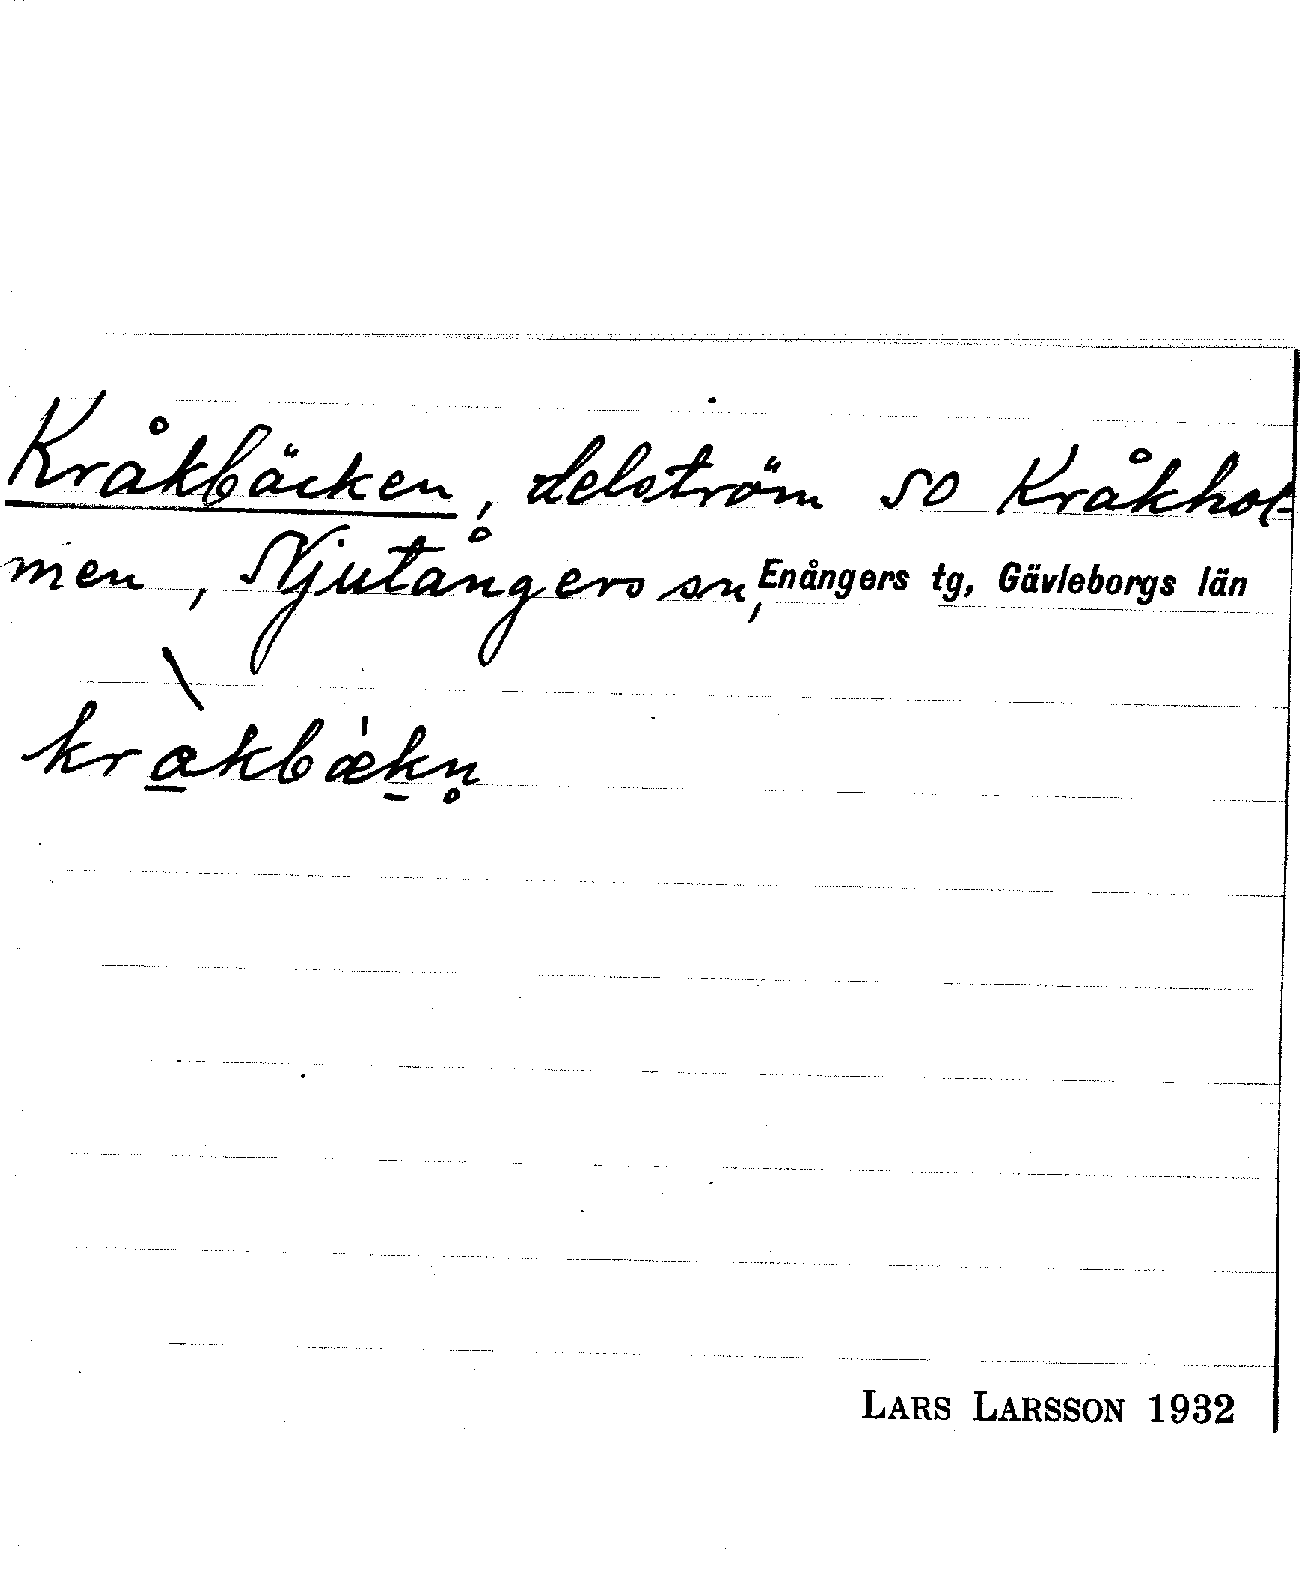 Kråkbäcken, delström SO Kråkhol-
men, Njutångers sn, Enångers tg, Gävleborgs län
krà̠kbǽk̠n̥
LARS LARSSON 1932